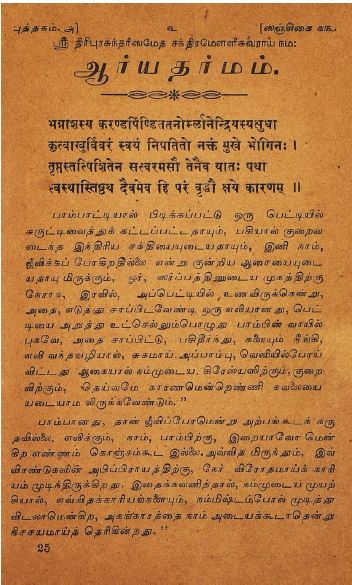 புத்தகம். அ] உ [ஸஞ்சிகை கந.
ஸ்ரீ திரிபுரசுந்தரீஸமேத சந்திரமௌளீசுவராய நம:
ஆர்யதர்மம்.
भग्नाशस्य करण्डपिण्डिततनोर्म्लानेन्द्रियस्यक्षुधा
कृत्वाखुर्विवरं स्वयं निपतितो नक्तं मुखे भोगिनः ।
तृप्तस्तत्पिशितेन सत्वरमसौ तेनैव यातः पथा
स्वस्थास्तिष्ठथ दैवमेव हि परं वृद्धौ क्षये कारणम् ॥
பாம்பாட்டியால் பிடிக்கப்பட்டு ஒரு பெட்டியில்
சுருட்டிவைத்துக் கட்டப்பட்டதாயும், பசியால் குறைவ
டைந்த இந்திரிய சக்தியையுடையதாயும், இனி நாம்,
ஜீவிக்கப் போகிறதில்லை என்று குன்றிய ஆசையையுடை
யதாயு மிருக்கும், ஓர், ஸர்ப்பத்தினுடைய முகத்திற்கு
நேராக, இரவில், அப்பெட்டியில், உணவிருக்கென்று,
அதை, எடுத்து சாப்பிடவேண்டி ஒரு எலியானது, பெட்
டியை அறுத்து உட்செல்லும்பொழுது பாம்பின் வாயில்
புகவே, அதை சாப்பிட்டு, பசிதீர்ந்து, களையும் நீங்கி,
எலி வந்தவழியால், சுகமாய் அப்பாம்பு, வெளியில்போய்
விட்டது ஆகையால் நம்முடைய, க்ஷேமத்திற்கும், குறை
விற்கும், "தெய்வமே காரணமென்றெண்ணி கவலையை
யடையாம லிருக்கவேண்டும்."
பாம்பானது, தான் ஜீவிப்போமென்று அற்பங்கூடக் கரு
தவில்லை, எலிக்கும், நாம், பாம்பிற்கு, இறையாவோ மென்
கிற எண்ணம் கொஞ்சம்கூட இல்லை. அவ்வித மிருந்தும், இவ்
விரண்டுகளின் அபிப்பிராயத்திற்கு, நேர் விரோதமாய்க் காரி
யம் முடிந்திருக்கிறது. இதைக்கவனித்தால், நம்முடைய முயற்
சியால், எவ்விதக்காரியங்களையும், நம்மிஷ்டம்போல் முடித்து
விடலாமென்கிற, அகங்காரத்தை நாம் அடையக்கூடாதென்று
நிச்சயமாய்த் தெரிகின்றது."
25